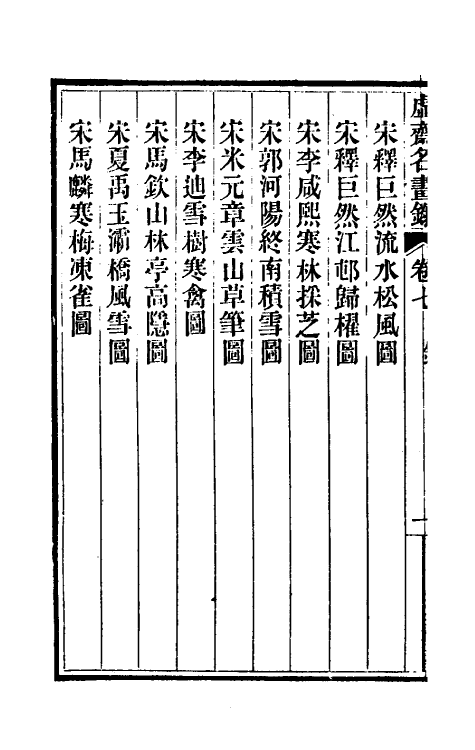 虛齋名畫錄 卷七 一
宋釋巨然流水松風圖
宋釋巨然江邨歸櫂圖
宋李咸熙寒林採芝圖
宋郭河陽終南積雪圖
宋米元章雲山草筆圖
宋李迪雪樹寒禽圖
宋馬欽山林亭高隱圖
宋夏禹玉灞橋風雪圖
宋馬麟寒梅凍雀圖